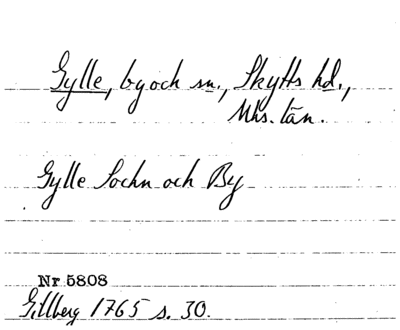 Gylle, by och sn., Skytts hd.,
Mhs. län.
Gylle Sochn och By
Nr 5808
Gillberg 1765 s. 30.